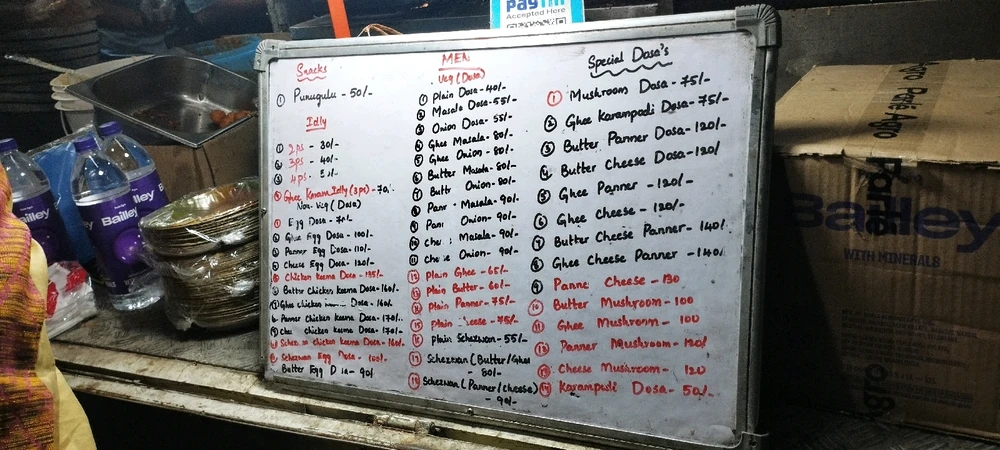 Paytm
Accepted Here
Snacks
① Punugulu - 50/-
Idly
① 2ps - 30/-
② 3ps - 40/-
③ 4ps -
Ghee Karam Idly (3ps) - 70/-
Non-Veg (Dosa)
① Egg Dosa - 70/-
② Ghee Egg Dosa - 100/-
③ Panner Egg Dosa - 110/-
④ Cheese Egg Dosa - 120/-
Chicken keema Dosa - 135/-
Butter Chicken keema Dosa - 160/-
Ghee chicken Dosa - 160/-
Panner Chicken keema Dosa - 170/-
Chicken keema Dosa - 170/-
chicken keema Dosa - 160/-
Schezwan Egg Dosa - 100/-
Butter Egg - 90/-
MEN
Veg (Dosa)
① Plain Dosa - 40/-
② Masala Dosa - 55/-
③ Onion Dosa - 55/-
④ Ghee Masala - 80/-
⑤ Ghee Onion - 80/-
⑥ Butter Masala - 80/-
⑦ Butt Onion - 80/-
⑧ Pan Masala - 90/-
⑨ Pan Onion - 90/-
⑩ Che Masala - 90/-
⑪ Onion - 90/-
⑫ Plain Ghee - 65/-
⑬ Plain Butter - 60/-
⑭ Plain Panner - 75/-
⑮ Plain - 75/-
⑯ Plain Schezwan - 55/-
⑰ Schezwan (Butter/Ghee
- 80/-
⑱ Schezwan (Panner/cheese)
- 90/-
Special Dosa's
① Mushroom Dosa - 75/-
② Ghee Karampodi Dosa - 75/-
③ Butter Panner Dosa - 120/-
④ Butter Cheese Dosa - 120/
⑤ Ghee Panner - 120/-
⑥ Ghee Cheese - 120/-
⑦ Butter Cheese Panner - 140/
⑧ Ghee Cheese Panner - 140/
⑨ Cheese - 130
⑩ Butter Mushroom - 100
⑪ Ghee Mushroom - 100
⑫ Panner Mushroom - 120/
⑬ Cheese Mushroom - 120
⑭ Karampudi Dosa - 50/-
Bailley
Bailley
Bailley
Parle Agro
Bailley
WITH MINERALS